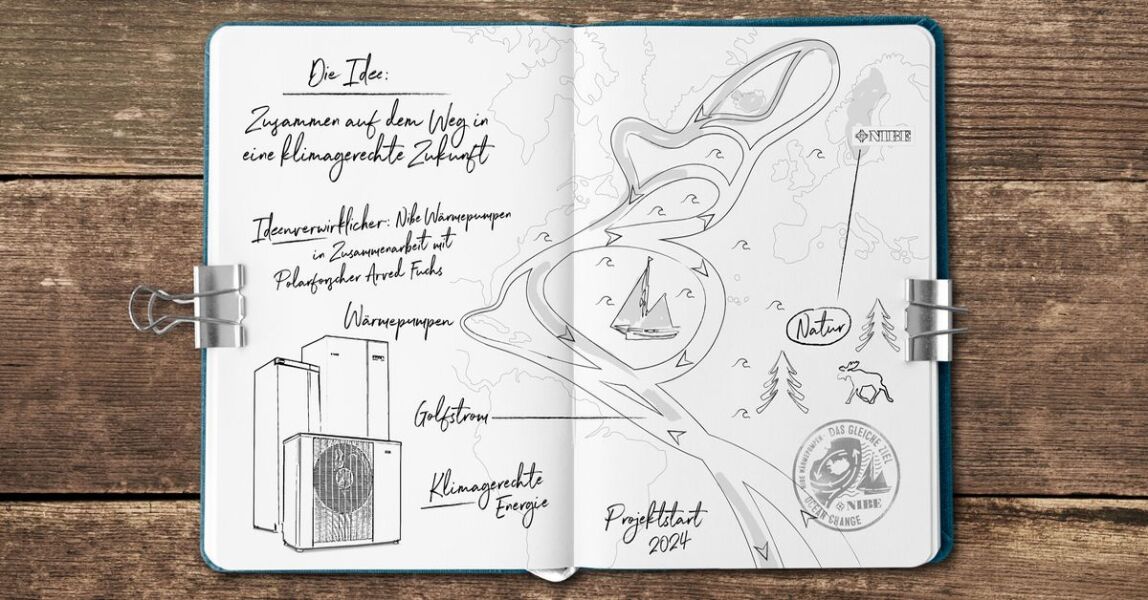 Die Idee:
Zusammen auf dem Weg in
eine klimagerechte Zukunft
Ideenverwirklicher: Nibe Wärmepumpen
in Zusammenarbeit mit
Polarforscher Arved Fuchs
Wärmepumpen
Golfstrom
Klimagerechte
Energie
NIBE
Natur
Projektstart
2024
NIBE WÄRMEPUMPEN · DAS GLEICHE ZIEL
NIBE
OCEAN CHANGE